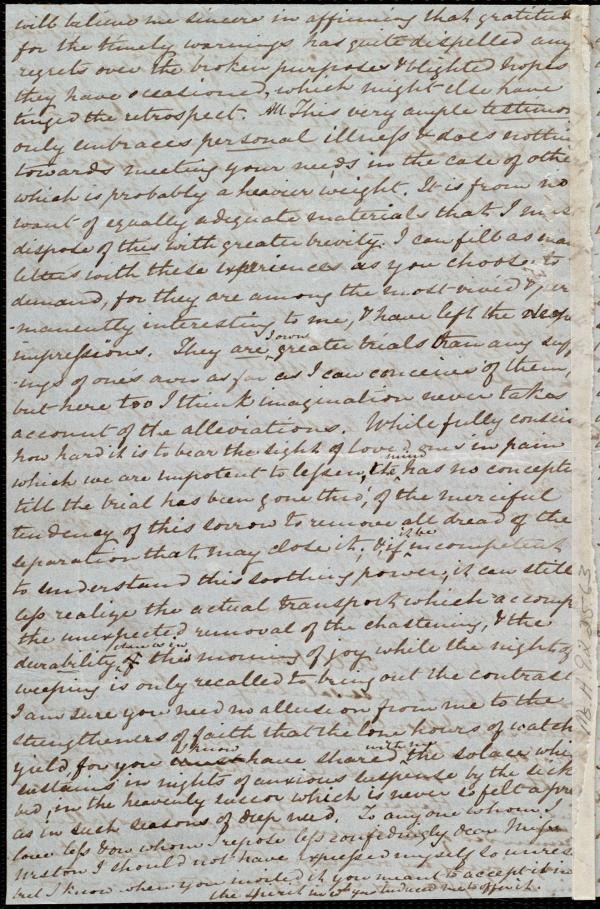 will believe me sincere in affirming that gratitude
for the timely warnings has quite dispelled any
regrets over the broken purposes & blighted hopes
they have occasioned, which might else have
tinged the retrospect. All This very ample testimon
only embraces personal illness & does nothin
towards meeting your needs in the case of other
which is probably a heavier weight. It is from no
want of equally adequate materials that I must
dispose of this with greater brevity. I can fill as man
letters with these experiences as you choose to
demand, for they are among the most vivid & per
-manently interesting to me, & have left the deep
impressions. They are, I own, greater trials than any suff
-ings of one's own as far as I can conceive of them,
but here too I think imagination never takes
account of the alleviations. While fully conscio
how hard it is to bear the sight of loved ones in pain
which we are impotent to lessen, the mind has no concepti
till the trial has been gone thro', of the merciful
tendency of this sorrow to remove all dread of the
separation that may close it; & if it be incompetent
to understand this soothing power, it can still
less realize the actual transport which accomp
the unexpected removal of the chastening, & the
durability of this morning of joy, while the night of
weeping is only recalled to bring out the contrast
I am sure you need no allusion from me to the
strengtheners of faith that the lone hours of watch
yield, for you I know have shared with it the solace whi
sustains in nights of anxious suspense by the sick
bed, in the heavenly succor which is never so felt
as in such seasons of deep need. To any one whom I
love less & on whom I repose less confidingly dear
I should not have expressed myself so unres
but I know when you invited it you meant to accept it in
the spirit in wh you induced me to offer it.